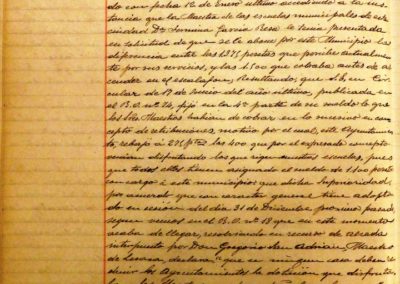 do con fecha 12 de Enero ultimo accediendo a la ins-
tancia que la Maestra de las escuelas municipales de esta
ciudad Dª Fermina Garcia Presa le tenia presentada
en solicitud de que se le abone por este Municipio la
diferencia entre las 1375 pesetas que percibe actualmen-
te por sus servicios, y las 1.500 que cobraba antes de as-
cender en el escalafon, Resultando, que S.E. en Cir-
cular de 17 de Junio del año ultimo, publicada en
el B.O. nº 76, fijó en la 4ª parte de su sueldo lo que
los Sres Maestros habian de cobrar en lo sucesivo en con-
cepto de retribuciones motivo por el cual, este Ayuntamien-
to, rebajó á 275 ptas las 400 que por el expresado concepto
venian disfrutando los que rigen nuestras escuelas, pues
que todos ellos tienen asignado el sueldo de 1.100 ptas
con cargo á este municipio que dicha Superioridad
por acuerdo que con caracter general tiene adopta-
do en sesion del dia 31 de Diciembre proximo pasado,
segun vemos en el B.O. nº 18 que en este momento
acaba de llegar, resolviendo un recurso de alzada
interpuesto por Don Gregorio San Adrian, Maestro
de Lesaca, declara, que en ningun caso deben re-
ducir los Ayuntamientos la dotacion que disfruta-